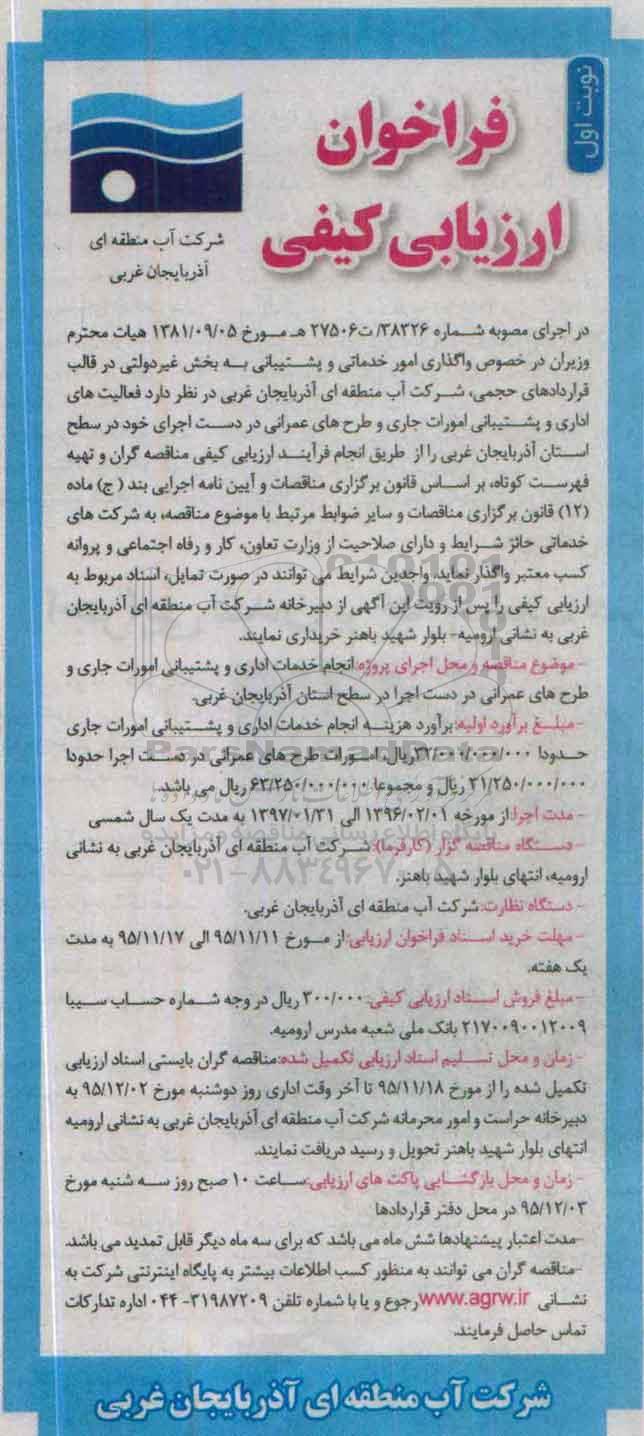 نوبت اول
فراخوان
ارزیابی کیفی
شرکت آب منطقه ای
آذربایجان غربی
در اجرای مصوبه شماره ۳۸۳۲۶/ ت۲۷۵۰۶ هـ مورخ ۱۳۸۱/۰۹/۰۵ هیات محترم
وزیران در خصوص واگذاری امور خدماتی و پشتیبانی به بخش غیردولتی در قالب
قراردادهای حجمی، شرکت آب منطقه ای آذربایجان غربی در نظر دارد فعالیت های
اداری و پشتیبانی امورات جاری و طرح های عمرانی در دست اجرای خود در سطح
استان آذربایجان غربی را از طریق انجام فرآیند ارزیابی کیفی مناقصه گران و تهیه
فهرست کوتاه، بر اساس قانون برگزاری مناقصات و آیین نامه اجرایی بند ( ج) ماده
(۱۲) قانون برگزاری مناقصات و سایر ضوابط مرتبط با موضوع مناقصه، به شرکت های
خدماتی حائز شرایط و دارای صلاحیت از وزارت تعاون، کار و رفاه اجتماعی و پروانه
کسب معتبر واگذار نماید. واجدین شرایط می توانند در صورت تمایل، اسناد مربوط به
ارزیابی کیفی را پس از رویت این آگهی از دبیرخانه شرکت آب منطقه ای آذربایجان
غربی به نشانی ارومیه- بلوار شهید باهنر خریداری نمایند.
- موضوع مناقصه و محل اجرای پروژه:انجام خدمات اداری و پشتیبانی امورات جاری و
طرح های عمرانی در دست اجرا در سطح استان آذربایجان غربی.
- مبلغ برآورد اولیه:برآورد هزینه انجام خدمات اداری و پشتیبانی امورات جاری
حدودا ۳۲/۰۰۰/۰۰۰/۰۰۰ریال، امورات طرح های عمرانی در دست اجرا حدودا
۳۱/۲۵۰/۰۰۰/۰۰۰ ریال و مجموعا ۶۳/۲۵۰/۰۰۰/۰۰۰ ریال می باشد.
- مدت اجرا:از مورخه ۱۳۹۶/۰۲/۰۱ الی ۱۳۹۷/۰۱/۳۱ به مدت یک سال شمسی
- دستگاه مناقصه گزار (کارفرما):شرکت آب منطقه ای آذربایجان غربی به نشانی
ارومیه، انتهای بلوار شهید باهنر.
- دستگاه نظارت:شرکت آب منطقه ای آذربایجان غربی.
- مهلت خرید اسناد فراخوان ارزیابی:از مورخ ۹۵/۱۱/۱۱ الی ۹۵/۱۱/۱۷ به مدت
یک هفته.
- مبلغ فروش اسناد ارزیابی کیفی: ۳۰۰/۰۰۰ ریال در وجه شماره حساب سیبا
۲۱۷۰۰۹۰۰۱۲۰۰۹ بانک ملی شعبه مدرس ارومیه.
- زمان و محل تسلیم اسناد ارزیابی تکمیل شده:مناقصه گران بایستی اسناد ارزیابی
تکمیل شده را از مورخ ۹۵/۱۱/۱۸ تا آخر وقت اداری روز دوشنبه مورخ ۹۵/۱۲/۰۲ به
دبیرخانه حراست و امور محرمانه شرکت آب منطقه ای آذربایجان غربی به نشانی ارومیه
انتهای بلوار شهید باهنر تحویل و رسید دریافت نمایند.
- زمان و محل بازگشایی پاکت های ارزیابی:ساعت ۱۰ صبح روز سه شنبه مورخ
۹۵/۱۲/۰۳ در محل دفتر قراردادها
-مدت اعتبار پیشنهادها شش ماه می باشد که برای سه ماه دیگر قابل تمدید می باشد.
-مناقصه گران می توانند به منظور کسب اطلاعات بیشتر به پایگاه اینترنتی شرکت به
نشانی www.agrw.ir رجوع و یا با شماره تلفن ۳۱۹۸۷۲۰۹-۰۴۴ اداره تدارکات
تماس حاصل فرمایند.
شرکت آب منطقه ای آذربایجان غربی
ParsNamadData
پایگاه اطلاع رسانی مناقصه و مزایده